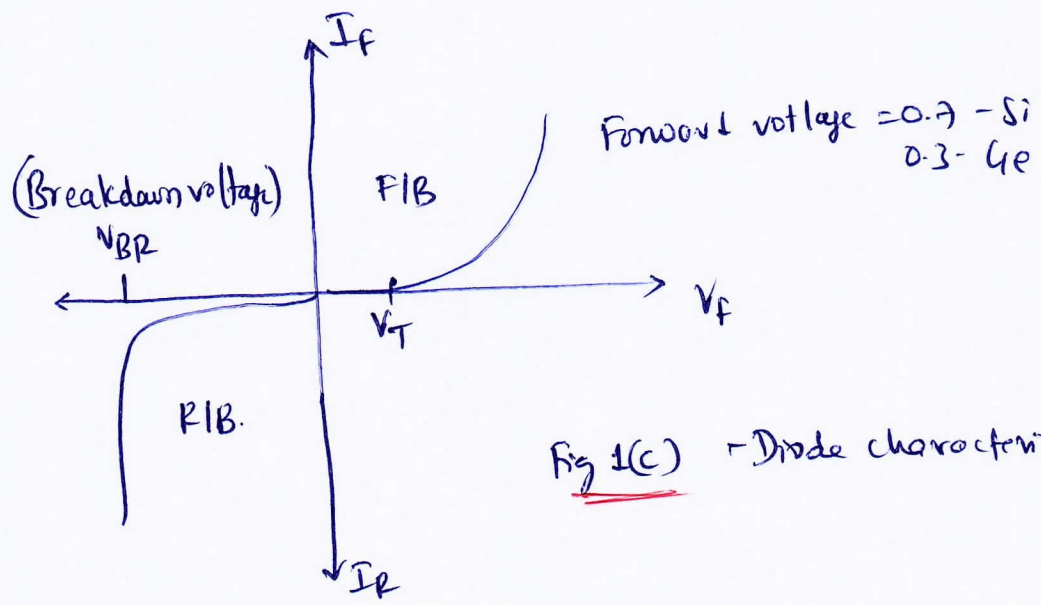 I_F
Forward votlage = 0.7 - Si
0.3 - Ge
(Breakdown voltage)
F/B
V_BR
V_T
V_F
R/B.
Fig 1(c) - Diode characteri
I_R